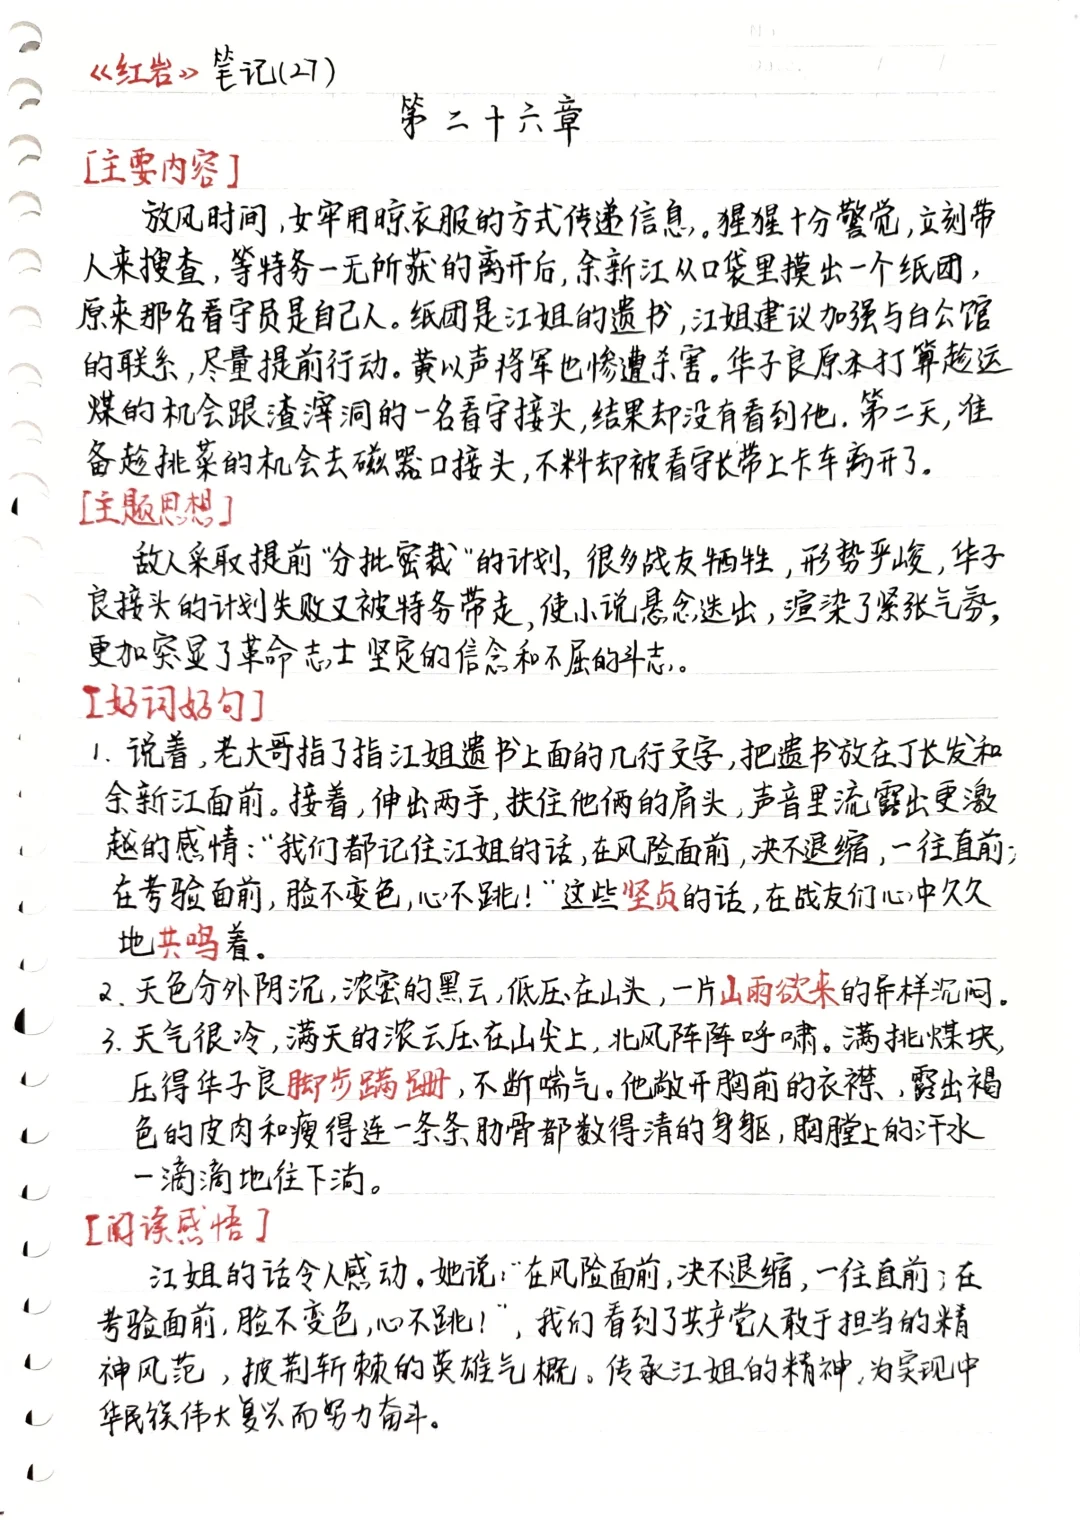 《红岩》笔记(27)
第二十六章
[主要内容]
放风时间,女牢用晾衣服的方式传递信息。猩猩十分警觉,立刻带
人来搜查,等特务一无所获的离开后,余新江从口袋里摸出一个纸团,
原来那名看守员是自己人。纸团是江姐的遗书,江姐建议加强与白公馆
的联系,尽量提前行动。黄以声将军也惨遭杀害。华子良原本打算趁运
煤的机会跟渣滓洞的一名看守接头,结果却没有看到他.第二天,准
备趁挑菜的机会去磁器口接头,不料却被看守长带上卡车离开了。
[主题思想]
敌人采取提前"分批密裁"的计划,很多战友牺牲,形势严峻,华子
良接头的计划失败又被特务带走,使小说悬念迭出,渲染了紧张气氛,
更加突显了革命志士坚定的信念和不屈的斗志。
[好词好句]
1.说着,老大哥指了指江姐遗书上面的几行文字,把遗书放在丁长发和
余新江面前。接着,伸出两手,扶住他俩的肩头,声音里流露出更激
越的感情:"我们都记住江姐的话,在风险面前,决不退缩,一往直前;
在考验面前,脸不变色,心不跳!"这些坚贞的话,在战友们心中久久
地共鸣着。
2.天色分外阴沉,浓密的黑云,低压在山头,一片山雨欲来的异样沉闷。
3.天气很冷,满天的浓云压在山尖上,北风阵阵呼啸。满挑煤块,
压得华子良脚步蹒跚,不断喘气。他敞开胸前的衣襟,露出褐
色的皮肉和瘦得连一条条肋骨都数得清的身躯,胸膛上的汗水
一滴滴地往下淌。
[阅读感悟]
江姐的话令人感动。她说:"在风险面前,决不退缩,一往直前;在
考验面前,脸不变色,心不跳!",我们看到了共产党人敢于担当的精
神风范,披荆斩棘的英雄气概。传承江姐的精神,为实现中
华民族伟大复兴而努力奋斗。